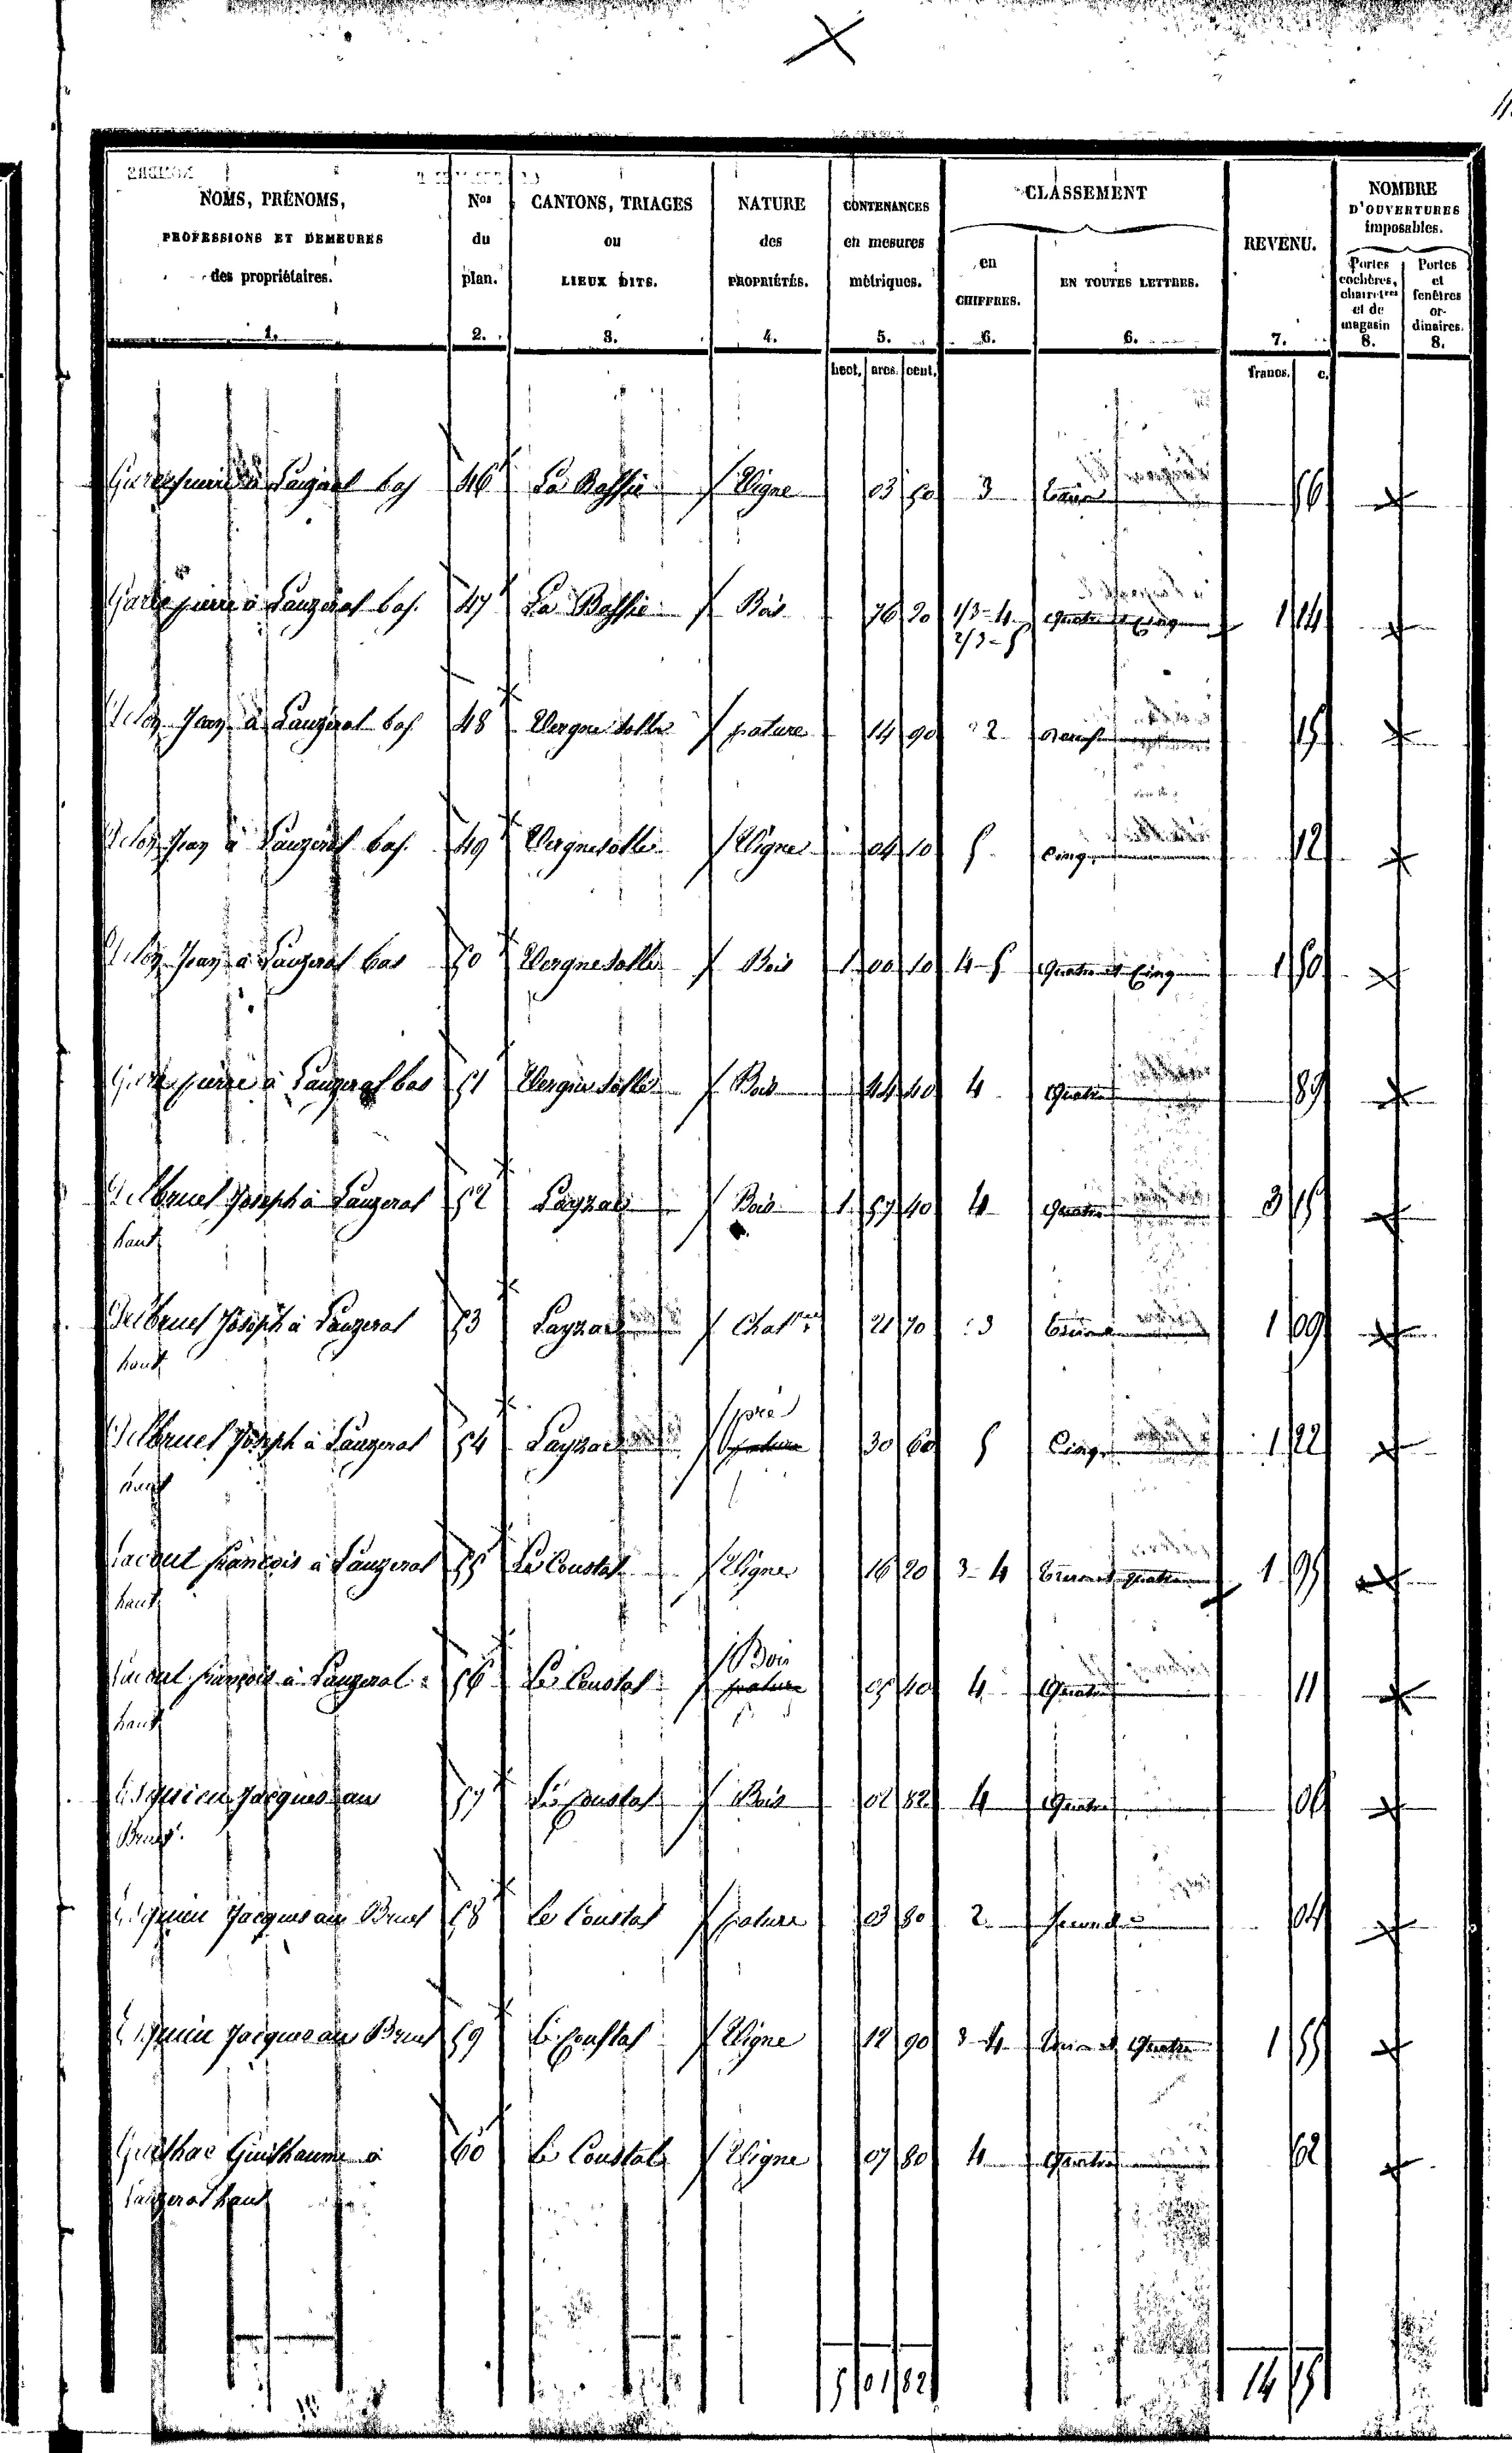 NOMS, PRÉNOMS, PROFESSIONS ET DEMEURES des propriétaires. 1.
Nos du plan. 2.
CANTONS, TRIAGES ou LIEUX DITS. 3.
NATURE des PROPRIÉTÉS. 4.
CONTENANCES en mesures métriques. 5.
CLASSEMENT
en CHIFFRES. 6.
EN TOUTES LETTRES. 6.
REVENU. 7.
NOMBRE D'OUVERTURES imposables.
Portes cochères, charretres et de magasin 8.
Portes et fenêtres ordinaires. 8.
hect. ares. cent. francs. c.
pierre à Lauzeral bas 46 La Bassie Vigne 03 50 3 trois 56
pierre à Lauzeral bas. 47 La Bassie Bois 76 20 1/3-4 quatre et Cinq 1 14
2/3-5
Jean à Lauzeral bas 48 Vergnesolle pature 14 90 2 15
Jean à Lauzeral bas. 49 Vergnesolle Vigne 04 10 5 Cinq 12
Jean à Lauzeral bas 50 Vergnesolle Bois 1 00 10 4-5 Quatre et Cinq 1 50
pierre à Lauzeral bas 51 Vergnesolle Bois 44 40 4 Quatre 89
Delbruel Joseph à Lauzeral 52 Layrac Bois 1 57 40 4 Quatre 3 15
haut
Delbruel Joseph à Lauzeral 53 Layrac 21 70 3 trois 1 09
haut
pré
Delbruel Joseph à Lauzeral 54 Layrac pature 30 60 5 Cinq 1 22
haut
Lacout françois à Lauzeral 55 Le Coustal Vigne 16 20 3-4 trois et quatre 1 95
haut
Bois
Lacout françois à Lauzeral 56 Le Coustal pature 05 40 4 Quatre 11
haut
Jacques au 57 Le Coustal Bois 02 82 4 Quatre 06
Bruel.
Jacques au Bruel 58 Le Coustal pature 03 80 2 second 04
Jacques au Bruel 59 Le Coustal Vigne 12 90 3-4 trois et Quatre 1 55
Guilhaume à 60 Le Coustal Vigne 07 80 4 Quatre 62
Lauzeral haut
5 01 82 14 15